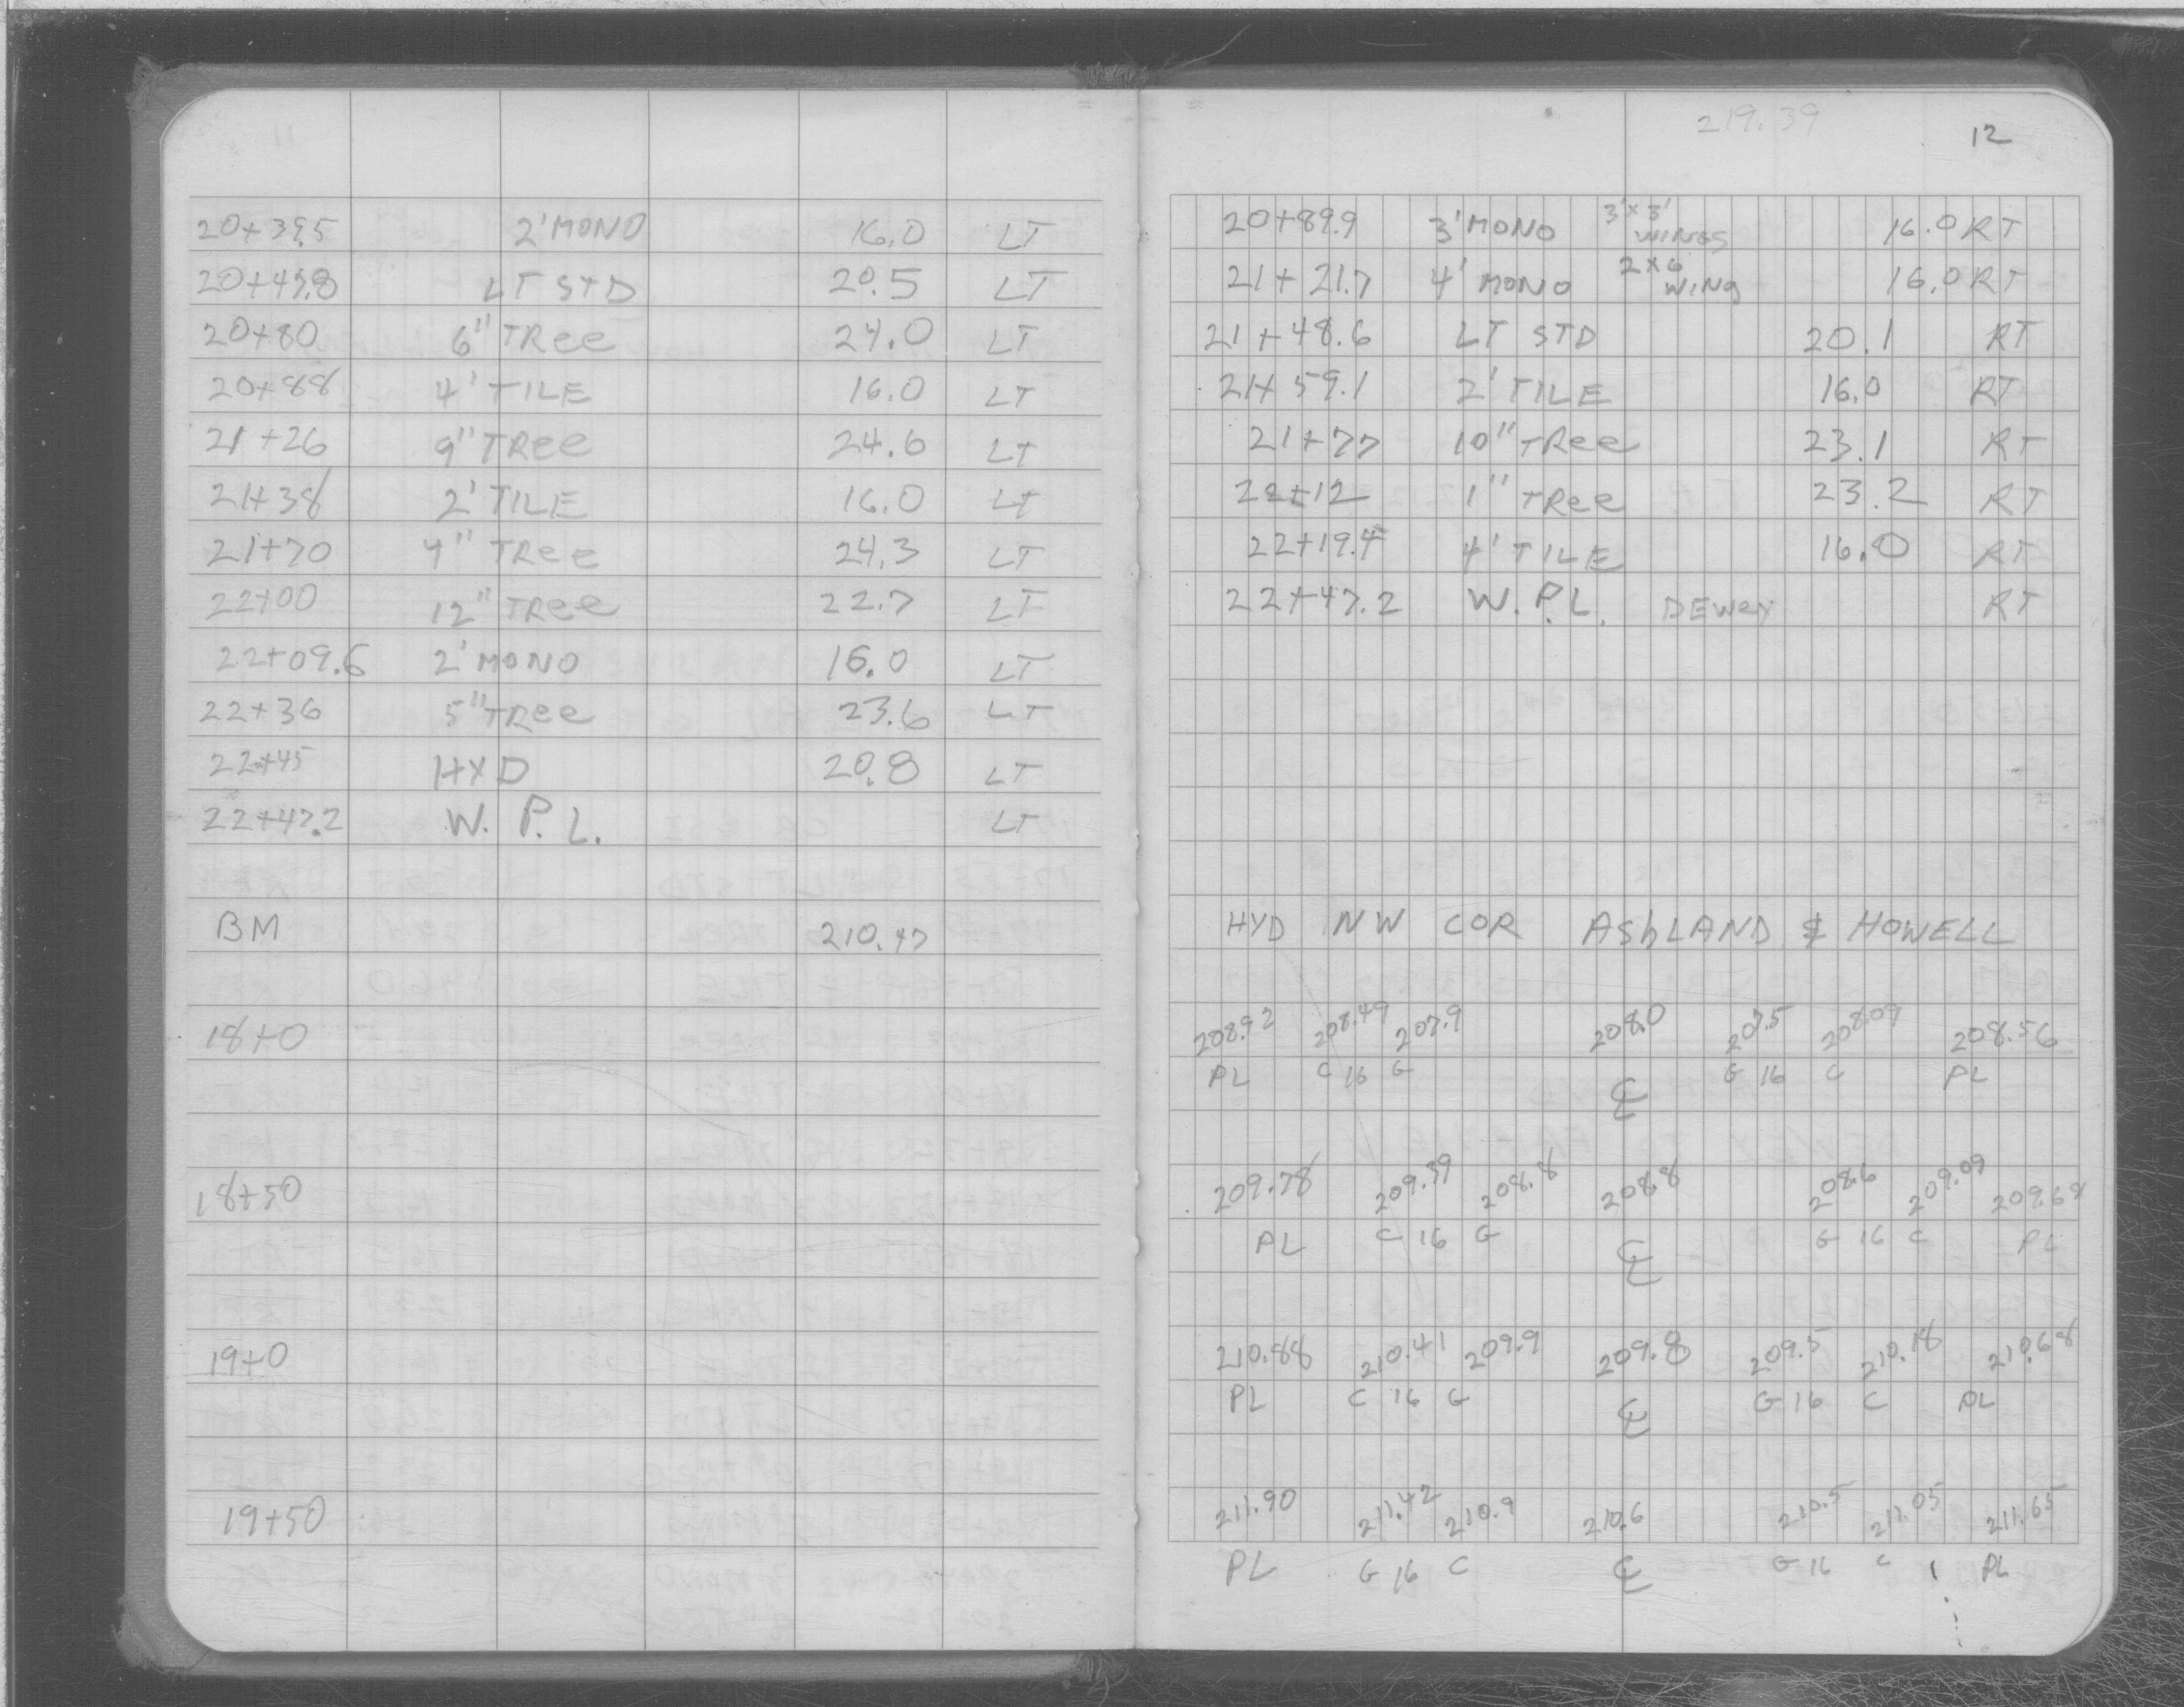 20+39.5 2' MONO 16.0 LT
20+47.8 LT STD 20.5 LT
20+80 6" TRee 24.0 LT
20+88 4' TILE 16.0 LT
21+26 9" TRee 24.6 LT
21+38 2' TILE 16.0 LT
21+70 4" TRee 24.3 LT
22+00 12" TRee 22.7 LT
22+09.6 2' MONO 16.0 LT
22+36 5" TRee 23.6 LT
22+45 HYD 20.8 LT
22+47.2 W. P. L. LT
BM 210.47
18+0
18+50
19+0
19+50
219.39
12
20+89.9 3' MONO 3'x3' WINGS 16.0 RT
21+21.7 4' MONO 2x6 WING 16.0 RT
21+48.6 LT STD 20.1 RT
21+59.1 2' TILE 16.0 RT
21+77 10" TRee 23.1 RT
22+12 1" TRee 23.2 RT
22+19.4 4' TILE 16.0 RT
22+47.2 W. P.L. DEWEY RT
HYD NW COR ASHLAND & HOWELL
208.92 208.49 207.9 208.0 207.5 208.07 208.56
PL C 16 G ℄ G 16 C PL
209.78 209.39 208.8 208.8 208.6 209.09 209.68
PL C 16 G ℄ G 16 C PL
210.88 210.41 209.9 209.8 209.5 210.18 210.68
PL C 16 G ℄ G 16 C PL
211.90 211.42 210.9 210.6 210.5 211.05 211.65
PL G 16 C ℄ G 16 C PL